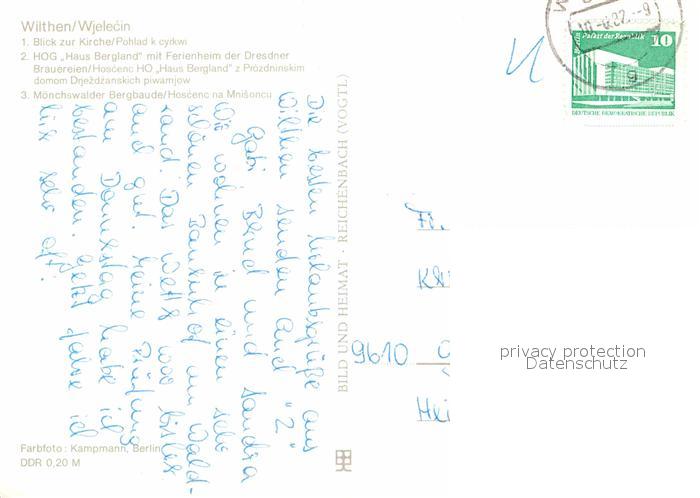 Wilthen/Wjelećin
1. Blick zur Kirche/Pohlad k cyrkwi
2. HOG „Haus Bergland" mit Ferienheim der Dresdner
Brauereien/Hosćenc HO „Haus Bergland" z Prózdninskim
domom Drježdźanskich piwarnjow
3. Mönchswalder Bergbaude/Hosćenc na Mnišoncu
Die besten Urlaubsgrüße aus
Wilthen senden Euch "2"
Gabi Bernd und Sandra
Wir wohnen in einem sehr
schönen Bauernhof am Wald-
rand. Das Wetter war bisher
auch gut. Meine Prüfung
am Donnerstag habe ich
bestanden. Jetzt fahre ich
sehr oft.
Farbfoto: Kampmann, Berlin
DDR 0,20 M
BILD UND HEIMAT · REICHENBACH (VOGTL)
Palast der Republik
10
DEUTSCHE DEMOKRATISCHE REPUBLIK
Fr.
9610
privacy protection
Datenschutz